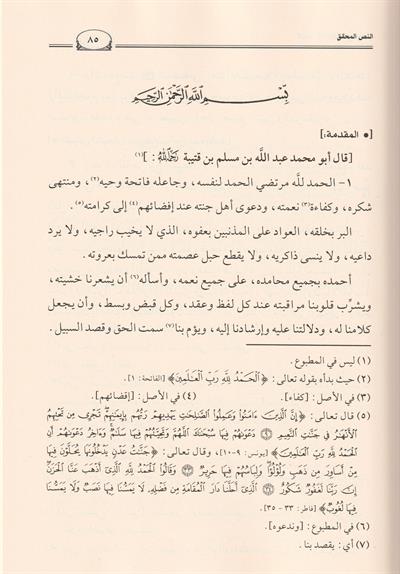 النص المحقق
٨٥
بِسْمِ اللَّهِ الرَّحْمَٰنِ الرَّحِيمِ
• المقدمة:]
[قال أبو محمد عبد الله بن مسلم بن قتيبة رَحِمَهُ اللَّهُ : ](١)
١- الحمد لله مرتضي الحمد لنفسه، وجاعله فاتحة وحيه(٢)، ومنتهى
شكره، وكفاءة(٣) نعمته، ودعوى أهل جنته عند إفضائهم(٤) إلى كرامته(٥).
البر بخلقه، العواد على المذنبين بعفوه، الذي لا يخيب راجيه، ولا يرد
داعيه، ولا ينسى ذاكريه، ولا يقطع حبل عصمته ممن تمسك بعروته.
أحمده بجميع محامده، على جميع نعمه، وأسأله(٦) أن يشعرنا خشيته،
ويشرِّب قلوبنا مراقبته عند كل لفظ وعقد، وكل قبض وبسط، وأن يجعل
كلامنا له، ودلالتنا عليه وإرشادنا إليه، ويؤم بنا(٧) سمت الحق وقصد السبيل.
(١) ليس في المطبوع.
(٢) حيث بدأه بقوله تعالى: ﴿الْحَمْدُ لِلَّهِ رَبِّ الْعَالَمِينَ﴾ [الفاتحة: ١].
(٣) في الأصل: [كفاء]. (٤) في الأصل: [إقضائهم].
(٥) قال تعالى: ﴿إِنَّ الَّذِينَ ءَامَنُوا وَعَمِلُوا الصَّالِحَاتِ يَهْدِيهِمْ رَبُّهُم بِإِيمَانِهِمْ تَجْرِي مِن تَحْتِهِمُ
الْأَنْهَارُ فِي جَنَّاتِ النَّعِيمِ ۝ دَعْوَاهُمْ فِيهَا سُبْحَانَكَ اللَّهُمَّ وَتَحِيَّتُهُمْ فِيهَا سَلَامٌ وَءَاخِرُ دَعْوَاهُمْ أَنِ
الْحَمْدُ لِلَّهِ رَبِّ الْعَالَمِينَ﴾ [يونس: ٩-١٠]، وقال تعالى: ﴿جَنَّاتُ عَدْنٍ يَدْخُلُونَهَا يُحَلَّوْنَ فِيهَا
مِنْ أَسَاوِرَ مِن ذَهَبٍ وَلُؤْلُؤًا وَلِبَاسُهُمْ فِيهَا حَرِيرٌ ۝ وَقَالُوا الْحَمْدُ لِلَّهِ الَّذِي أَذْهَبَ عَنَّا الْحَزَنَ
إِنَّ رَبَّنَا لَغَفُورٌ شَكُورٌ ۝ الَّذِي أَحَلَّنَا دَارَ الْمُقَامَةِ مِن فَضْلِهِ لَا يَمَسُّنَا فِيهَا نَصَبٌ وَلَا يَمَسُّنَا
فِيهَا لُغُوبٌ﴾ [فاطر: ٣٣ - ٣٥].
(٦) في المطبوع: [وندعوه].
(٧) أي: يقصد بنا.